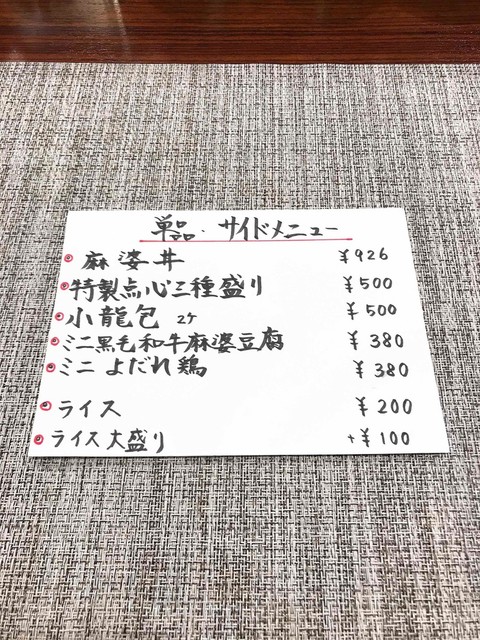 単品・サイドメニュー
麻婆丼 ¥926
特製点心三種盛り ¥500
小龍包 2ケ ¥500
ミニ黒毛和牛麻婆豆腐 ¥380
ミニよだれ鶏 ¥380
ライス ¥200
ライス大盛り +¥100